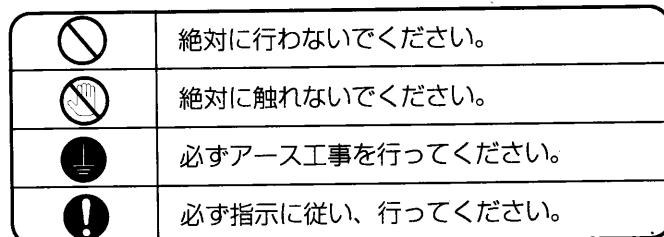 絶対に行わないでください。
絶対に触れないでください。
必ずアース工事を行ってください。
必ず指示に従い、行ってください。